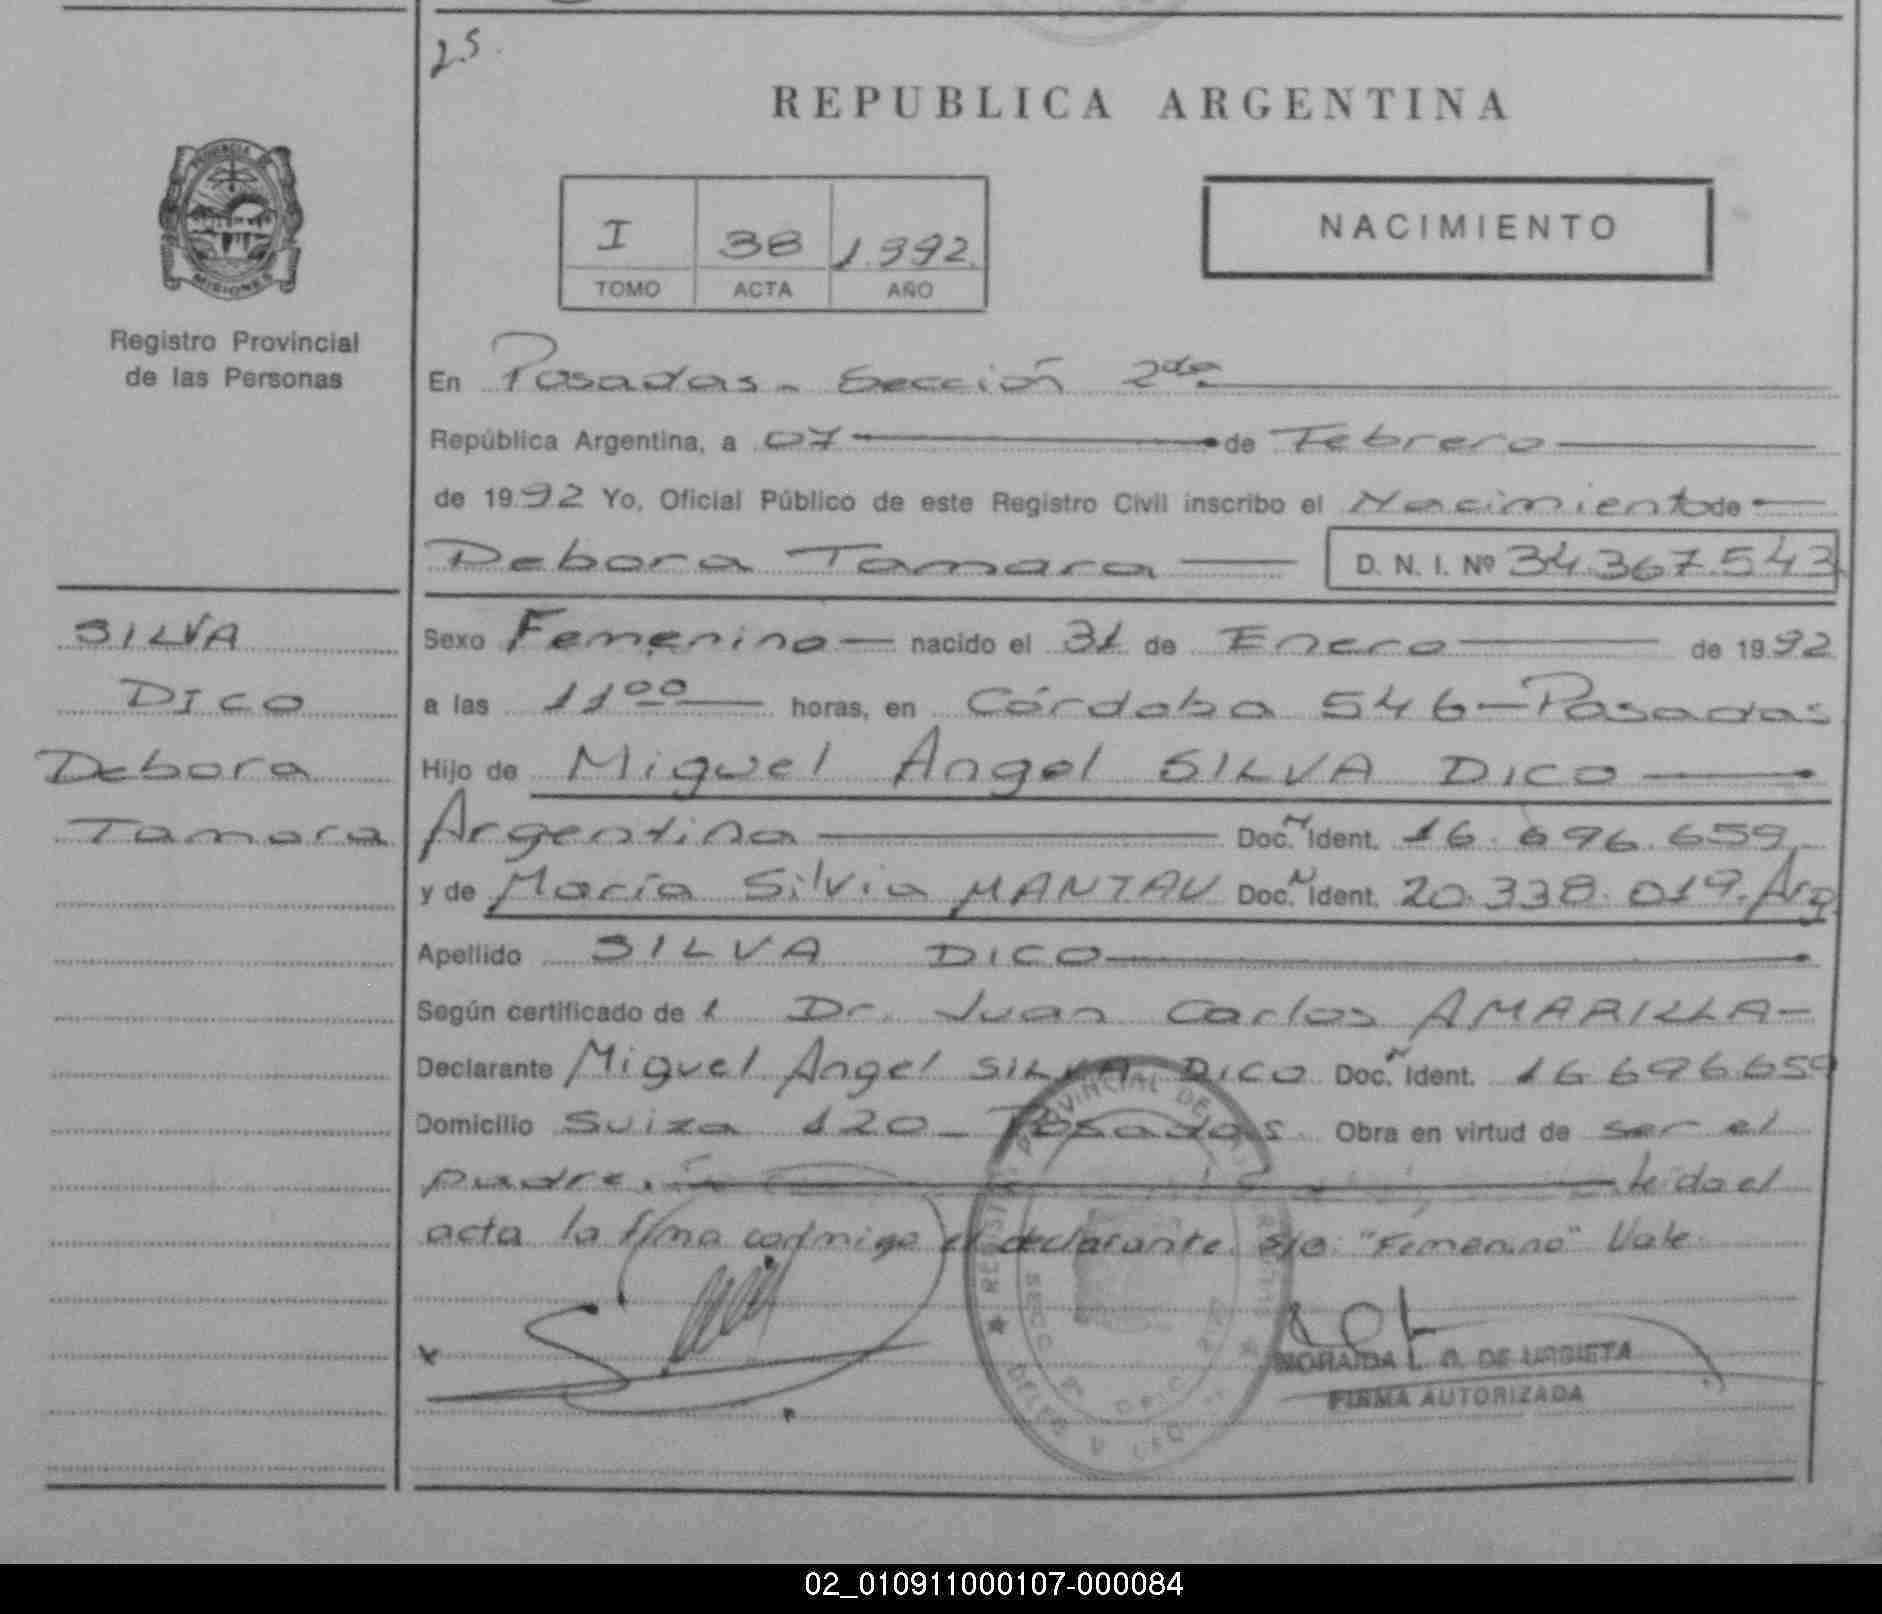 25.
REPUBLICA ARGENTINA
PROVINCIA DE
MISIONES
Registro Provincial
de las Personas
I 38 1.992.
TOMO ACTA AÑO
NACIMIENTO
En Posadas - Sección 2da
República Argentina, a 07 de Febrero
de 1992 Yo, Oficial Público de este Registro Civil inscribo el Nacimiento de
Debora Tamara D. N. I. Nº 34.367.543
SILVA
DICO
Debora
Tamara
Sexo Femenino nacido el 31 de Enero de 1992
a las 11 00 horas, en Córdoba 546 - Posadas
Hijo de Miguel Angel SILVA DICO
Argentina Doc. N Ident. 16.696.659
y de María Silvia MANTAU Doc. N Ident. 20.338.019. Arg
Apellido SILVA DICO
Según certificado del Dr. Juan Carlos AMARILLA -
Declarante Miguel Angel SILVA DICO Doc. N Ident. 16.696.659
Domicilio Suiza 120 - Posadas. Obra en virtud de ser el
padre. leida el
acta la firma conmigo el declarante. s/o: "Femenino" Vale.
REGISTRO PROVINCIAL DE LAS PERSONAS
MORAIDA L. G. DE URBIETA
FIRMA AUTORIZADA
02_010911000107-000084